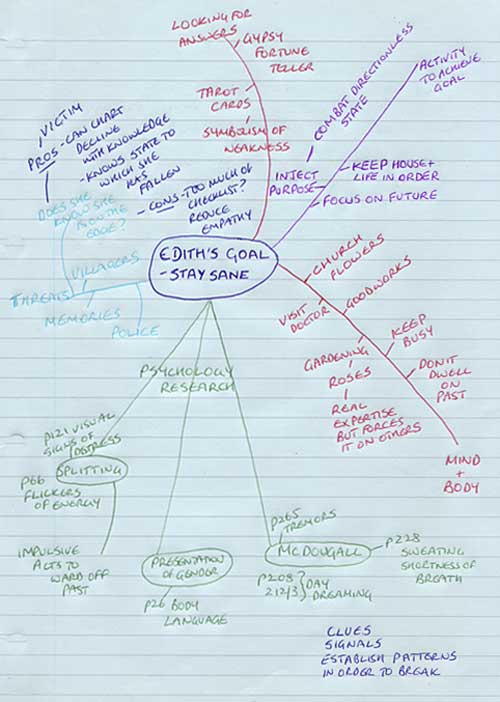 LOOKING FOR
ANSWERS
GYPSY
FORTUNE
TELLER
TAROT
CARDS
SYMBOLISM OF
WEAKNESS
COMBAT DIRECTIONLESS
STATE
ACTIVITY
TO ACHIEVE
GOAL
INJECT
PURPOSE
KEEP HOUSE +
LIFE IN ORDER
FOCUS ON FUTURE
VICTIM
PROS - CAN CHART
DECLINE
WITH KNOWLEDGE
- KNOWS STATE TO
WHICH SHE
HAS
FALLEN
- CONS - TOO MUCH OF
CHECKLIST?
REDUCE
EMPATHY
DOES SHE
KNOW SHE
IS ON THE
EDGE?
EDITH'S GOAL
- STAY SANE
THREATS
VILLAGERS
MEMORIES
POLICE
CHURCH
FLOWERS
VISIT
DOCTOR
GOODWORKS
GARDENING
ROSES
REAL
EXPERTISE
BUT FORCES
IT ON OTHERS
KEEP
BUSY
DON'T
DWELL
ON
PAST
MIND
+
BODY
PSYCHOLOGY
RESEARCH
P121 VISUAL
SIGNS OF
DISTRESS
SPLITTING
P66
FLICKERS
OF ENERGY
IMPULSIVE
ACTS TO
WARD OFF
PAST
PRESENTATION
OF GENDER
P26 BODY
LANGUAGE
P265
TREMORS
MCDOUGALL
P228
SWEATING
SHORTNESS OF
BREATH
P208
212/3 } DAY
DREAMING
CLUES
SIGNALS
ESTABLISH PATTERNS
IN ORDER TO BREAK